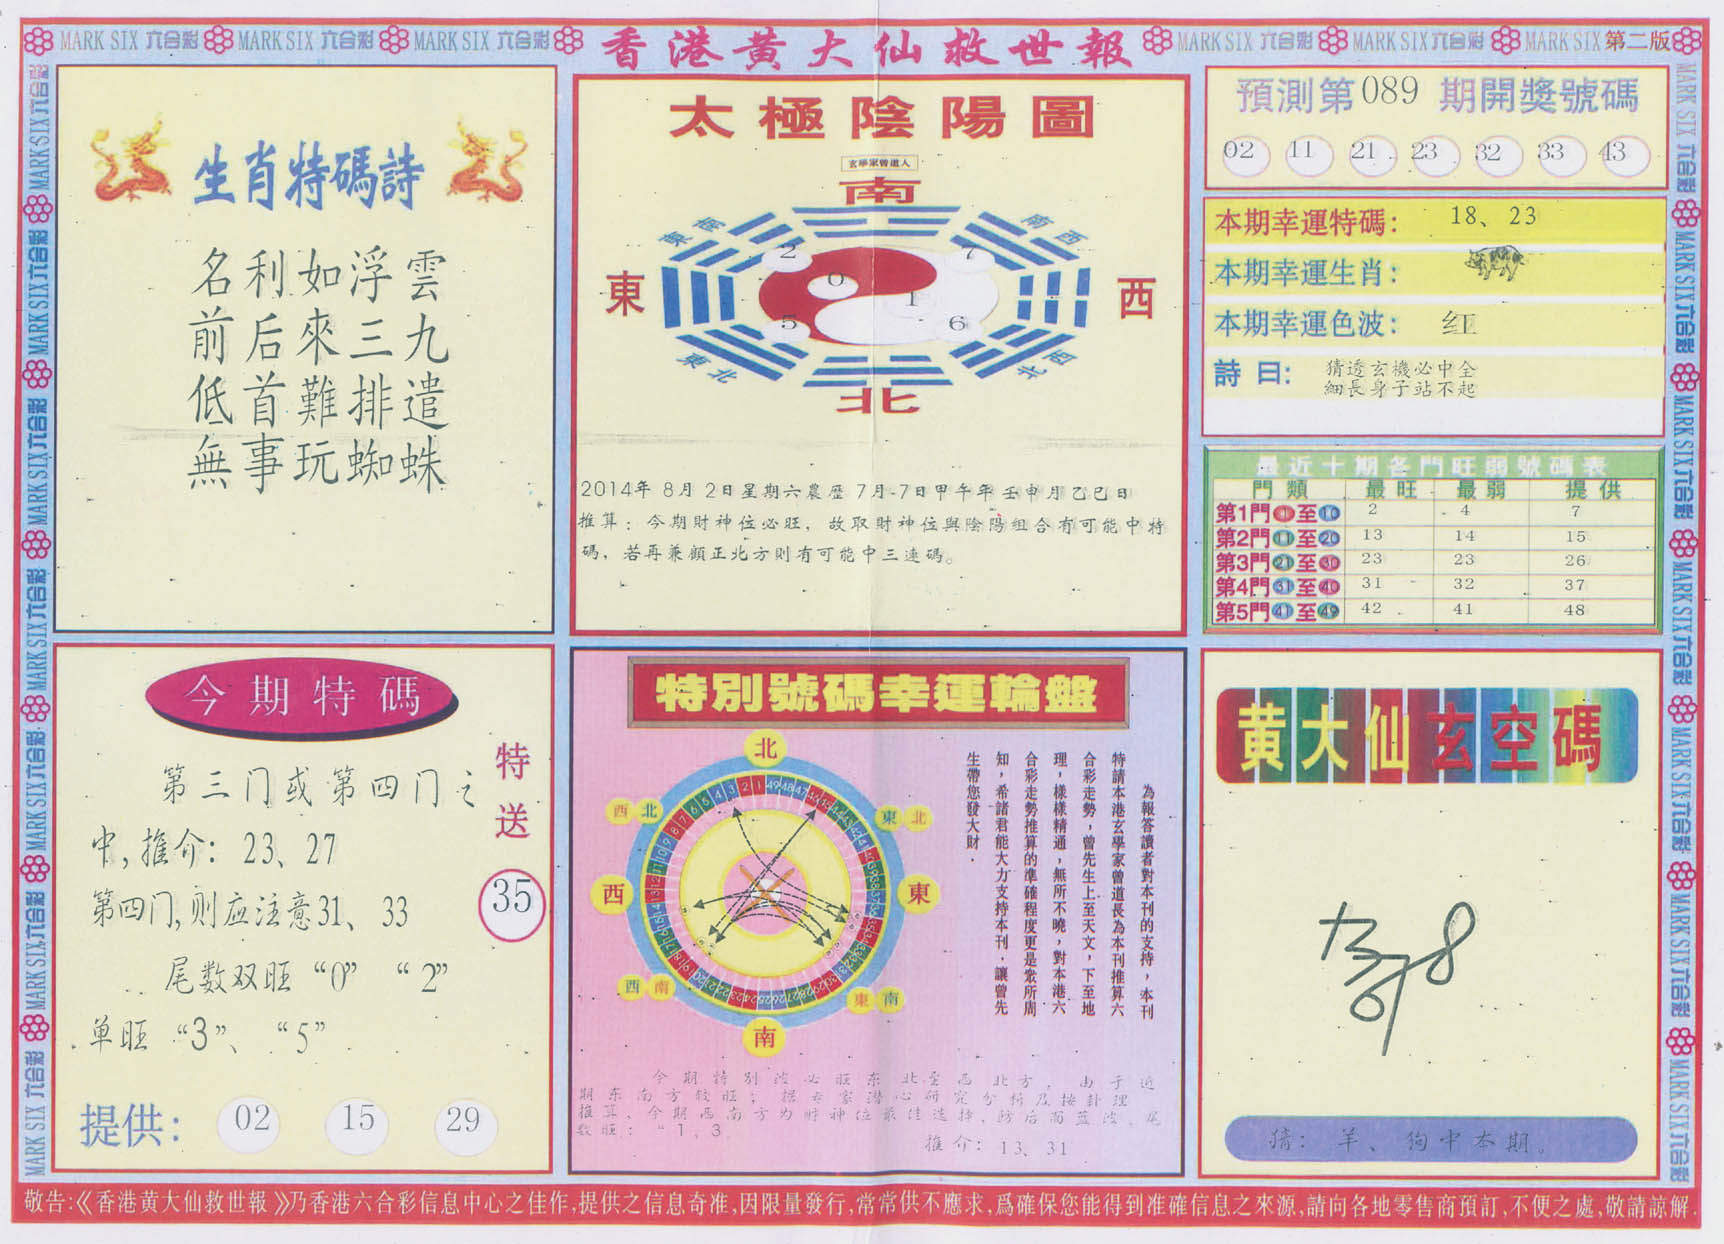 MARK SIX 六合彩 MARK SIX 六合彩 MARK SIX 六合彩
香港黄大仙救世報
MARK SIX 六合彩 MARK SIX 六合彩 MARK SIX 第二版
生肖特碼詩
名利如浮雲
前后來三九
低首難排遣
無事玩蜘蛛
太極陰陽圖
玄學家曾道人
南
東南
南西
東
西
2
7
0
1
5
6
東北
西北
北
2014年 8月 2日星期六農歷 7月-7日甲午年壬申月乙巳日
推算：今期財神位必旺，故取財神位與陰陽組合有可能中特
碼，若再兼顧正北方則有可能中三連碼。
預測第089期開獎號碼
02 11 21 23 32 33 43
本期幸運特碼： 18、23
本期幸運生肖：
本期幸運色波： 红
詩曰： 猜透玄機必中全
細長身子站不起
最近十期各門旺弱號碼表
門類 最旺 最弱 提供
第1門1至10 2 4 7
第2門11至20 13 14 15
第3門21至30 23 23 26
第4門31至40 31 32 37
第5門41至49 42 41 48
今期特碼
第三门或第四门之
中,推介：23、27
第四门,则应注意31、33
尾数双旺“0” “2”
单旺“3”、“5”
特送
35
提供： 02 15 29
特別號碼幸運輪盤
北
西北
東北
西
東
西南
東南
南
為報答讀者對本刊的支持，本刊
特請本港玄學家曾道長為本刊推算六
合彩走勢，曾先生上至天文，下至地
理，樣樣精通，無所不曉，對本港六
合彩走勢推算的準確程度更是眾所周
知，希諸君能大力支持本刊．讓曾先
生帶您發大財．
今期特别波必旺东北至西北方，由于近
期东南方较旺；据专家潜心研究分析及按卦理
推算、今期西南方为财神位最佳选择、防后而蓝波、尾
数旺：“1、3
推介：13、31
黄大仙玄空碼
猜：羊、狗中本期。
敬告:《香港黄大仙救世報》乃香港六合彩信息中心之佳作,提供之信息奇准,因限量發行,常常供不應求,爲確保您能得到准確信息之來源,請向各地零售商預訂,不便之處,敬請諒解.